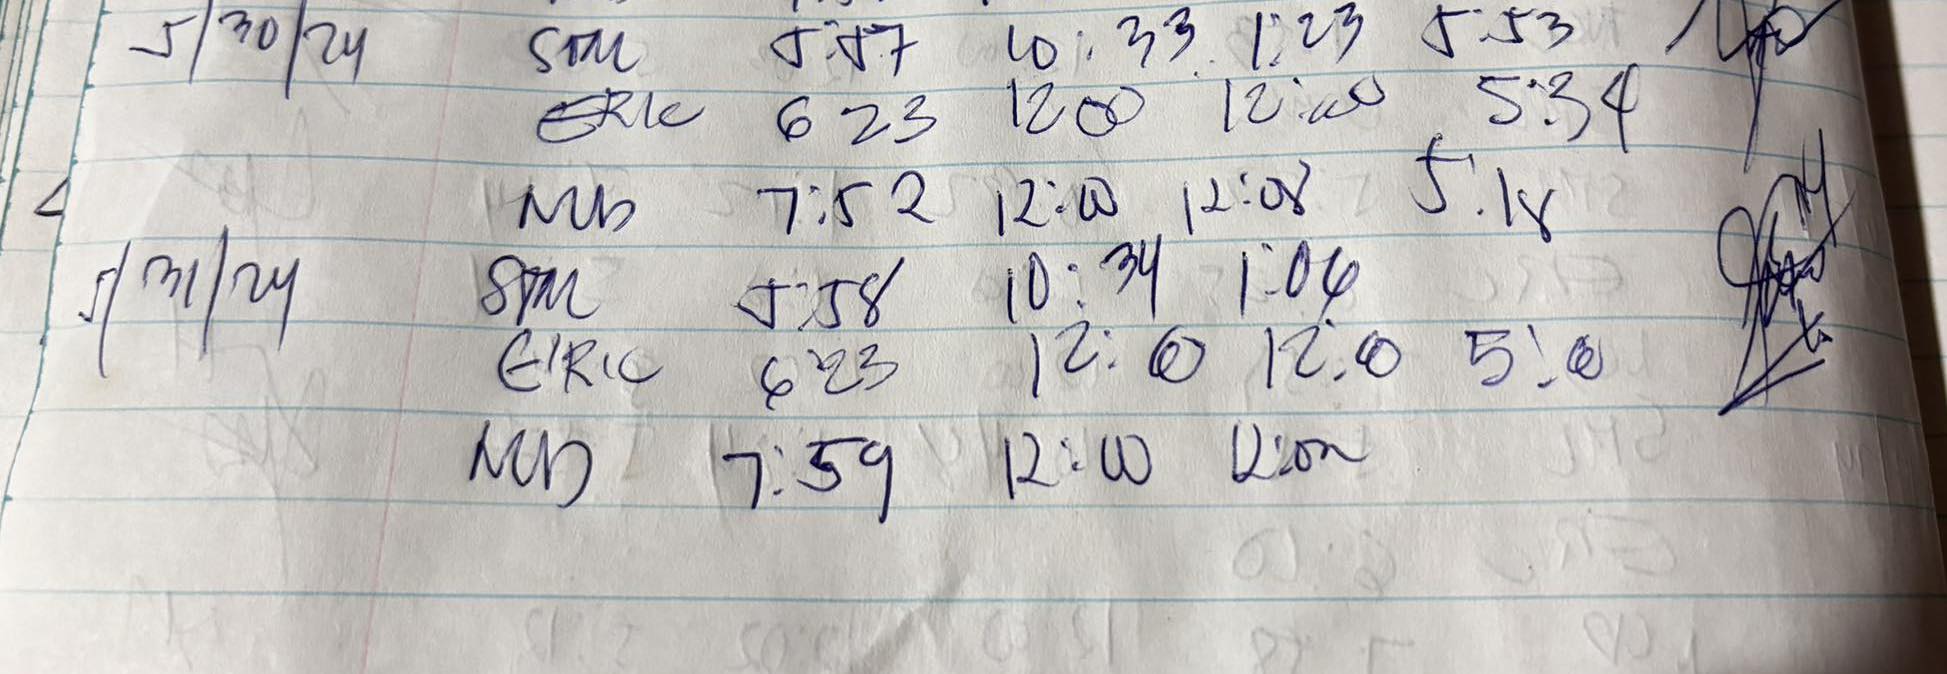 5/30/24 STM 5:57 10:33 1:23 5:53
ERIC 6 23 12 00 12:00 5:34
NCD 7:52 12:00 12:08 5:18
5/31/24 STM 5:58 10:34 1:06
ERIC 6 23 12:00 12:00 5:00
NCD 7:59 12:00 12:02